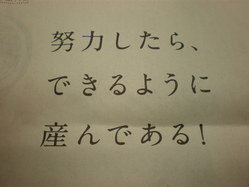 努力したら、
できるように
産んである!